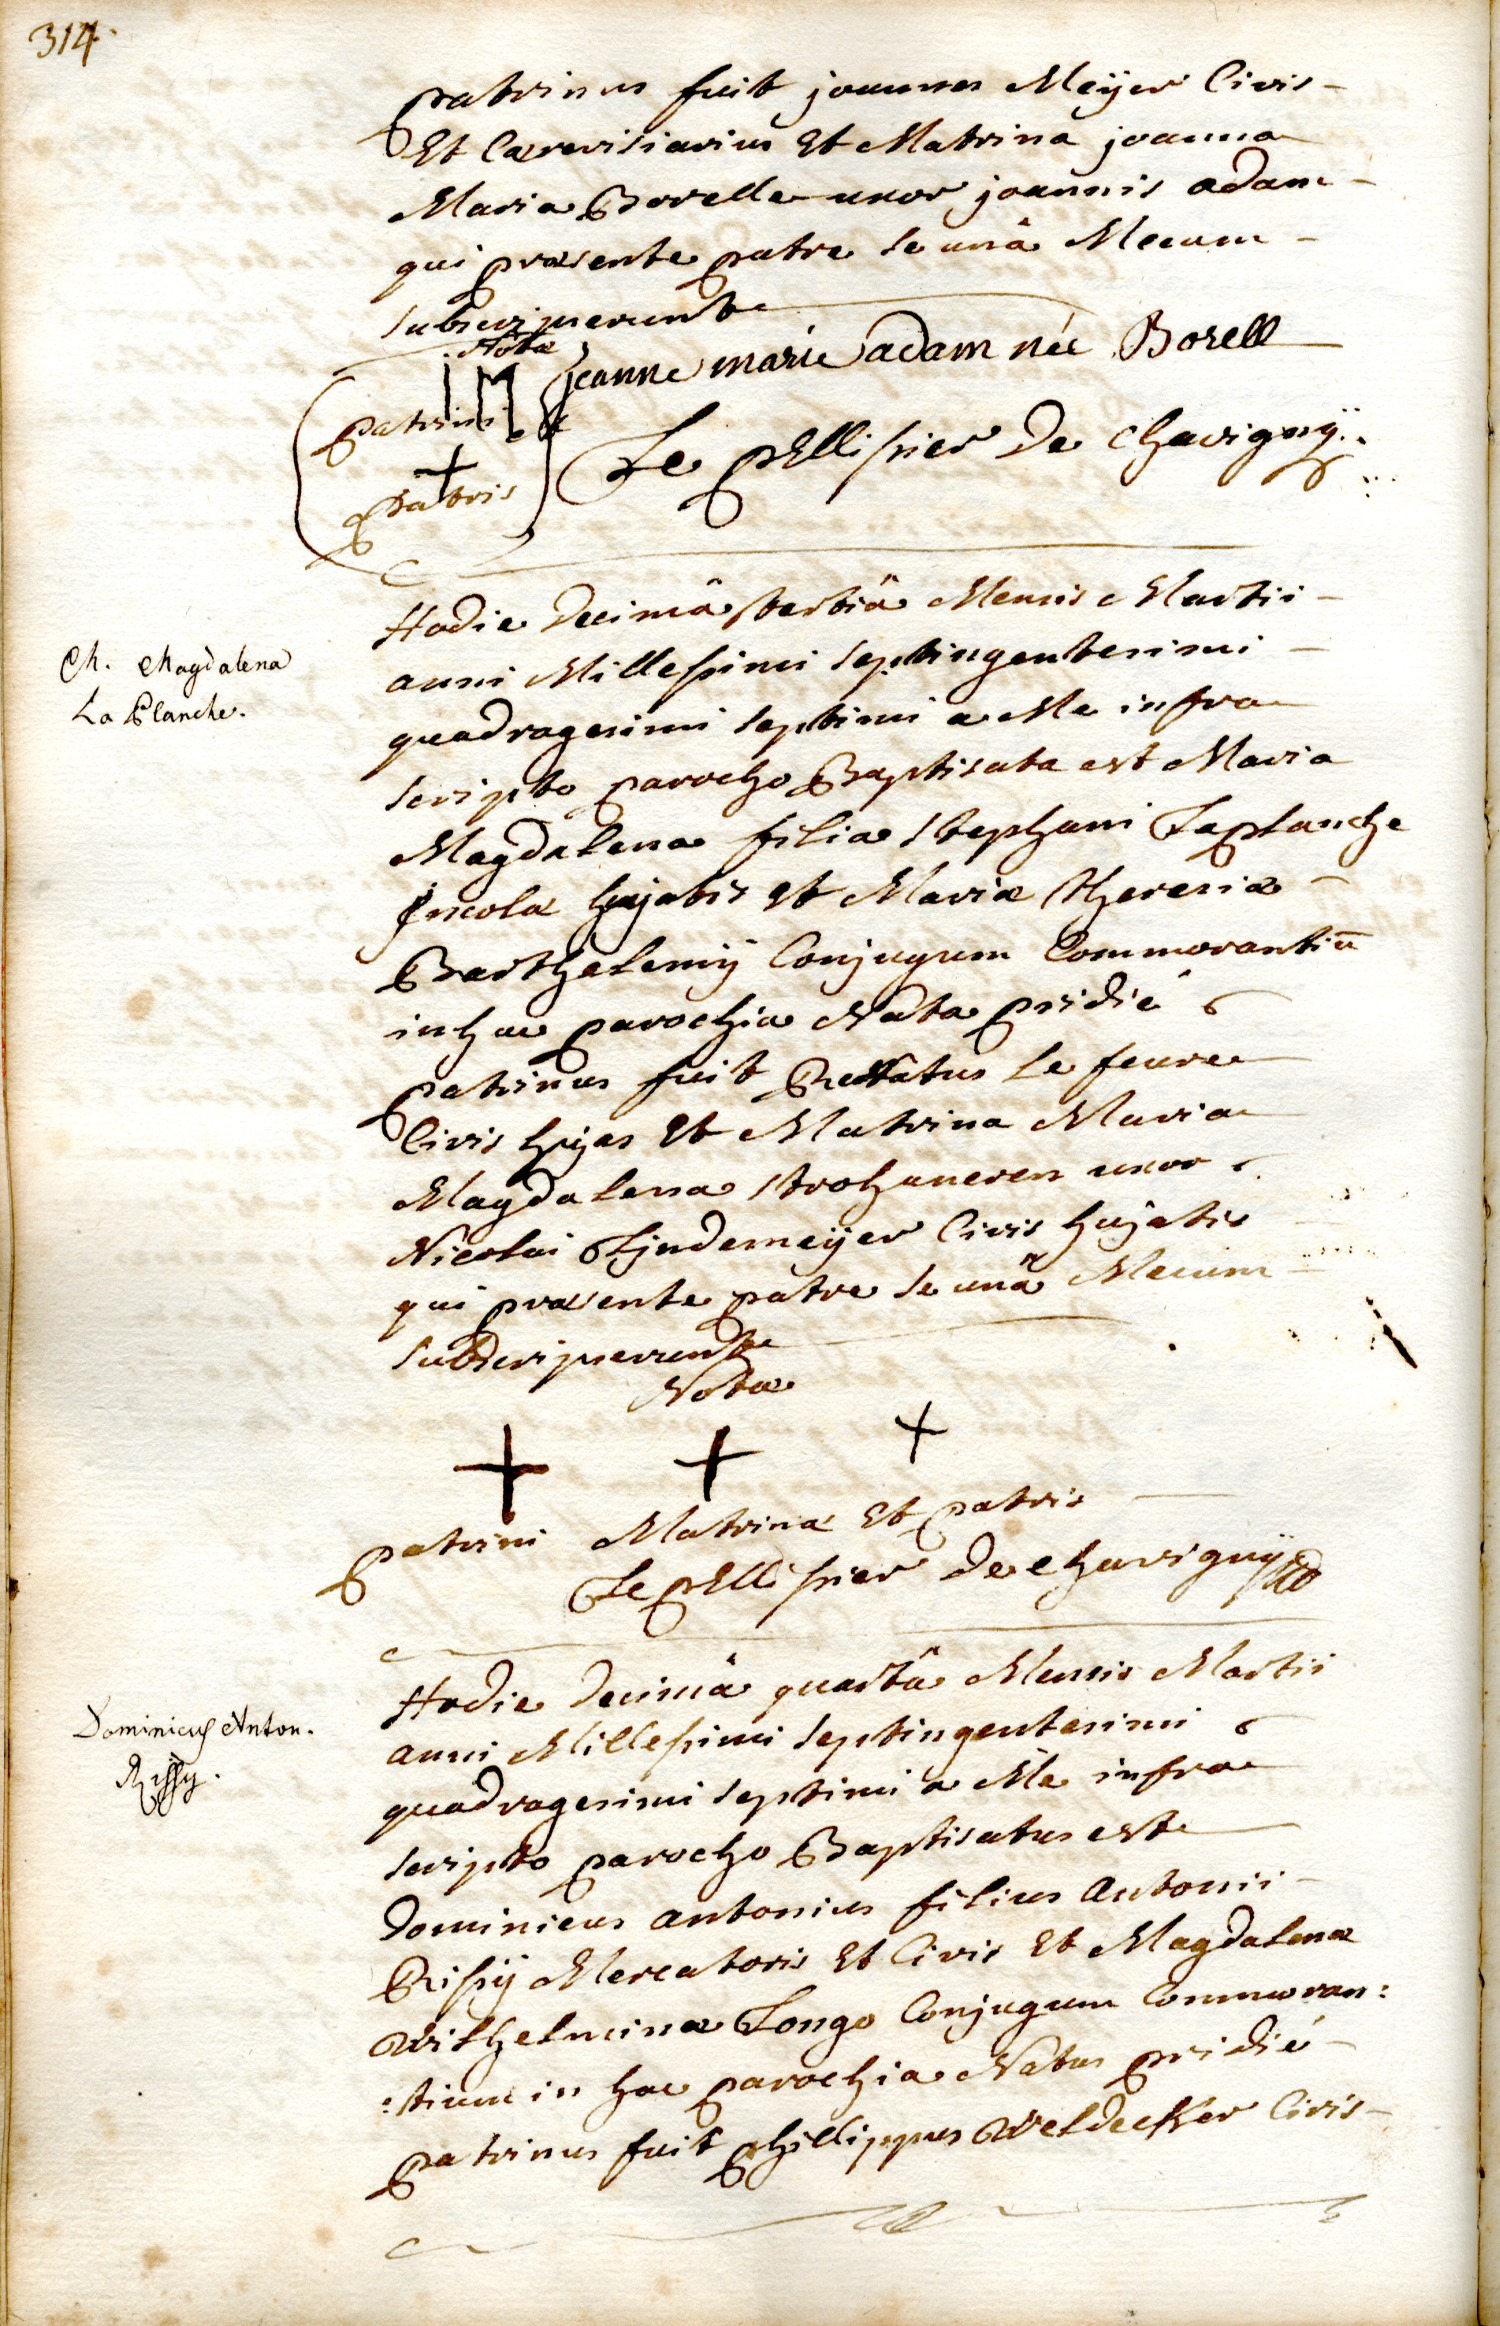 314.
patrinus fuit joannes Meÿer Civis –
Et Cærevisiarius Et Matrina joanna
Maria Borelle uxor joannis adam –
qui præsente patre se unâ Mecum –
subscripserunt
Notæ
IM
patrini &
patris
jeanne marie adam née Borell
Le pEllissier De Chavignÿ
Hodie Decimâ tertiâ Mensis Martii –
anni Millesimi septingentesimi –
quadragesimi septimi a Me infra
M. Magdalena
La Planche.
scripto parocho Baptisata est Maria
Magdalena filia stephani Laplanche
Incolæ hujatis Et Mariæ Theresiæ –
Barthelemÿ Conjugum Commorantiū
in hac parochia Nata pridié
patrinus fuit Renatus Le feure
Civis hujas Et Matrina Maria
Magdalena strohaueren uxor
Nicolai Lindemeÿer Civis hujatis
qui præsente patre se unâ Mecum –
subscripserunt
Notæ
patrini Matrinæ Et patris
Le pEllissier De Chavignÿ
Hodie Decimâ quartâ Mensis Martii
anni Millesimi septingentesimi
quadragesimi septimi a Me infra
Dominicus Anton.
Rissy.
scripto parocho Baptisatus est
Dominicus antonius filius antonii –
Rissÿ Mercatoris Et Civis Et Magdalenæ
Wilhelminæ Longo Conjugum Commoran:
:tium in hac parochia Natus pridié –
patrinus fuit phillippus Weldecker Civis –